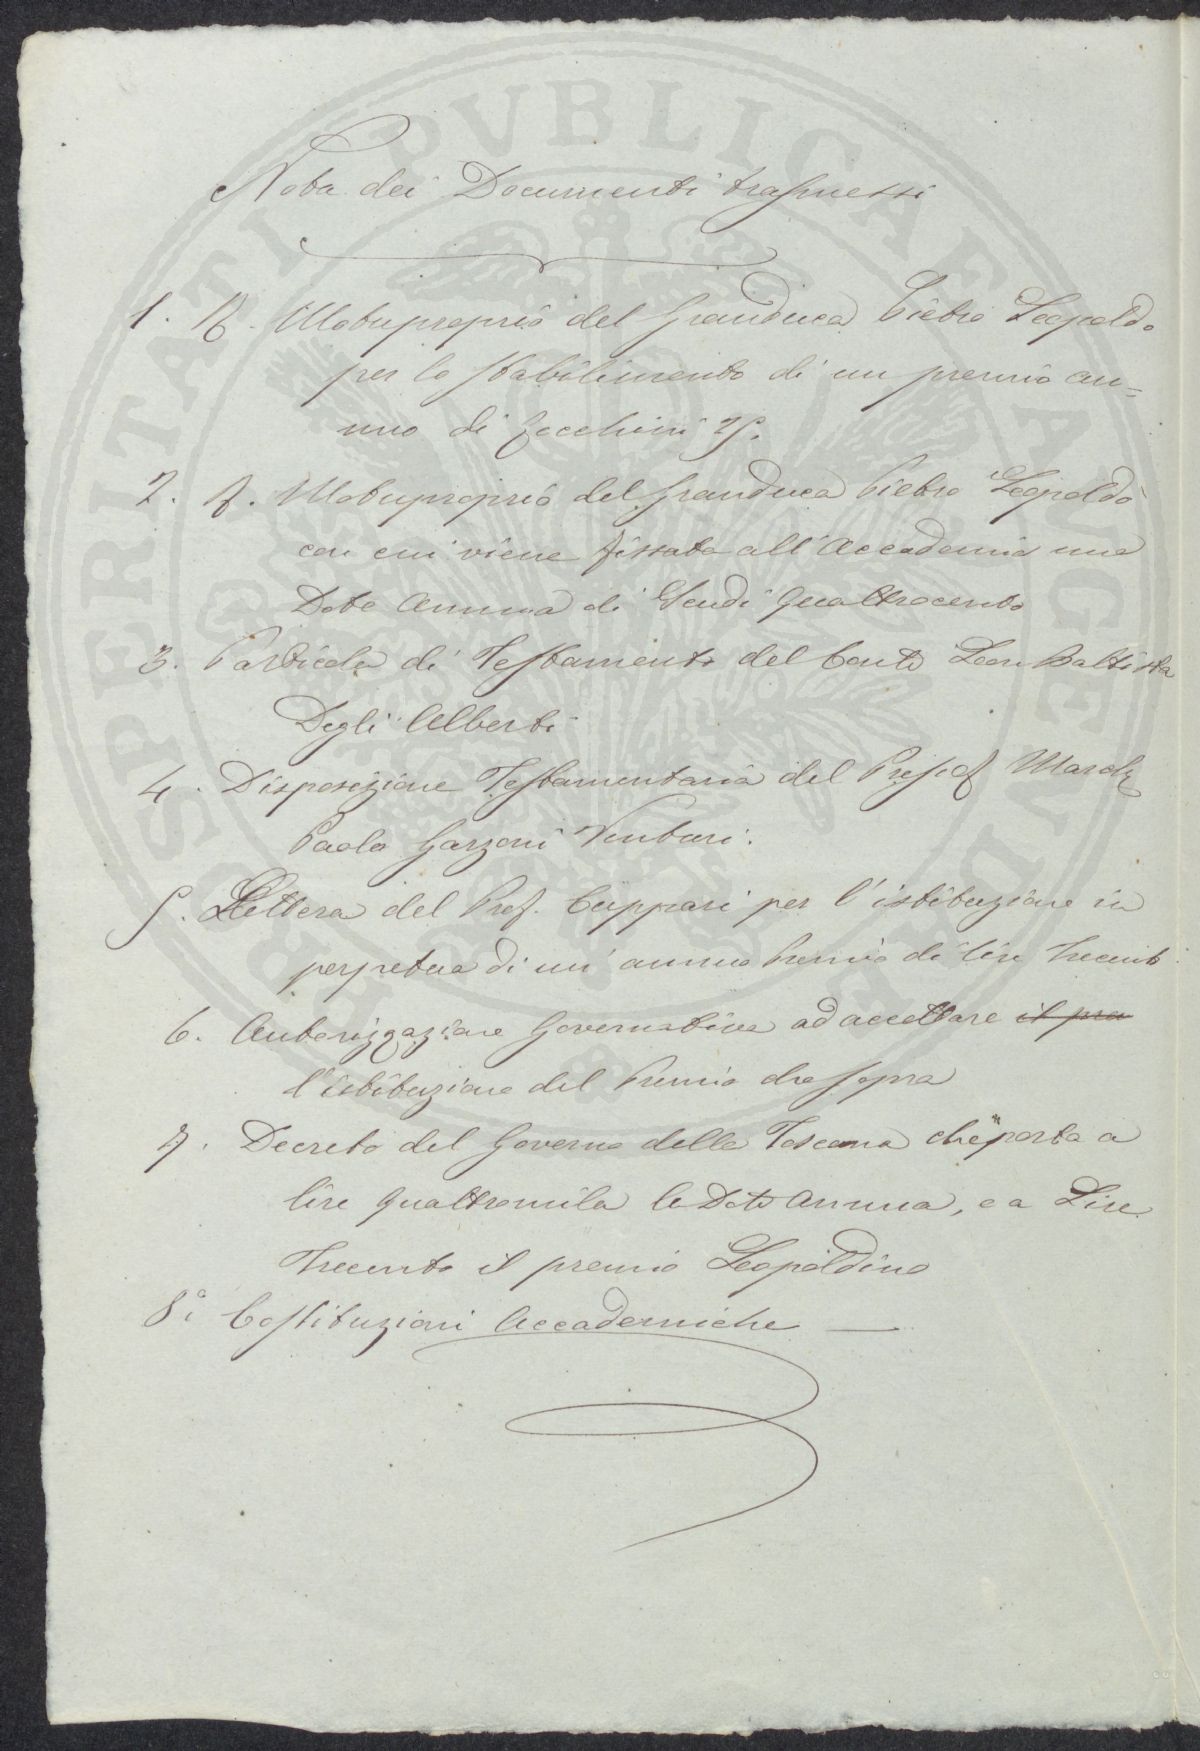 Nota dei Documenti trasmessi
1. R. Motuproprio del Granduca Pietro Leopoldo
per lo stabilimento di un premio an=
nuo di Zecchini 25.
2. R. Motuproprio del Granduca Pietro Leopoldo
con cui viene fissata all'Accademia una
Dote annua di Scudi Quattrocento
3. Particola di Testamento del Conte Leon Battista
Degli Alberti
4. Disposizione Testamentaria del March
Paolo Garzoni Venturi.
5. Lettera del Prof. Cuppari per l'istituzione in
perpetua di un' annuo Premio di lire Trecento
6. Autorizzazione Governativa ad accettare il pre
l'istituzione del Premio di sopra
7. Decreto del Governo della Toscana che porta a
lire quattromila la Dote annua, e a Lire
Trecento il premio Leopoldino
8° Costituzioni Accademiche —
PROSPERITATI PVBLICAE AVGENDAE